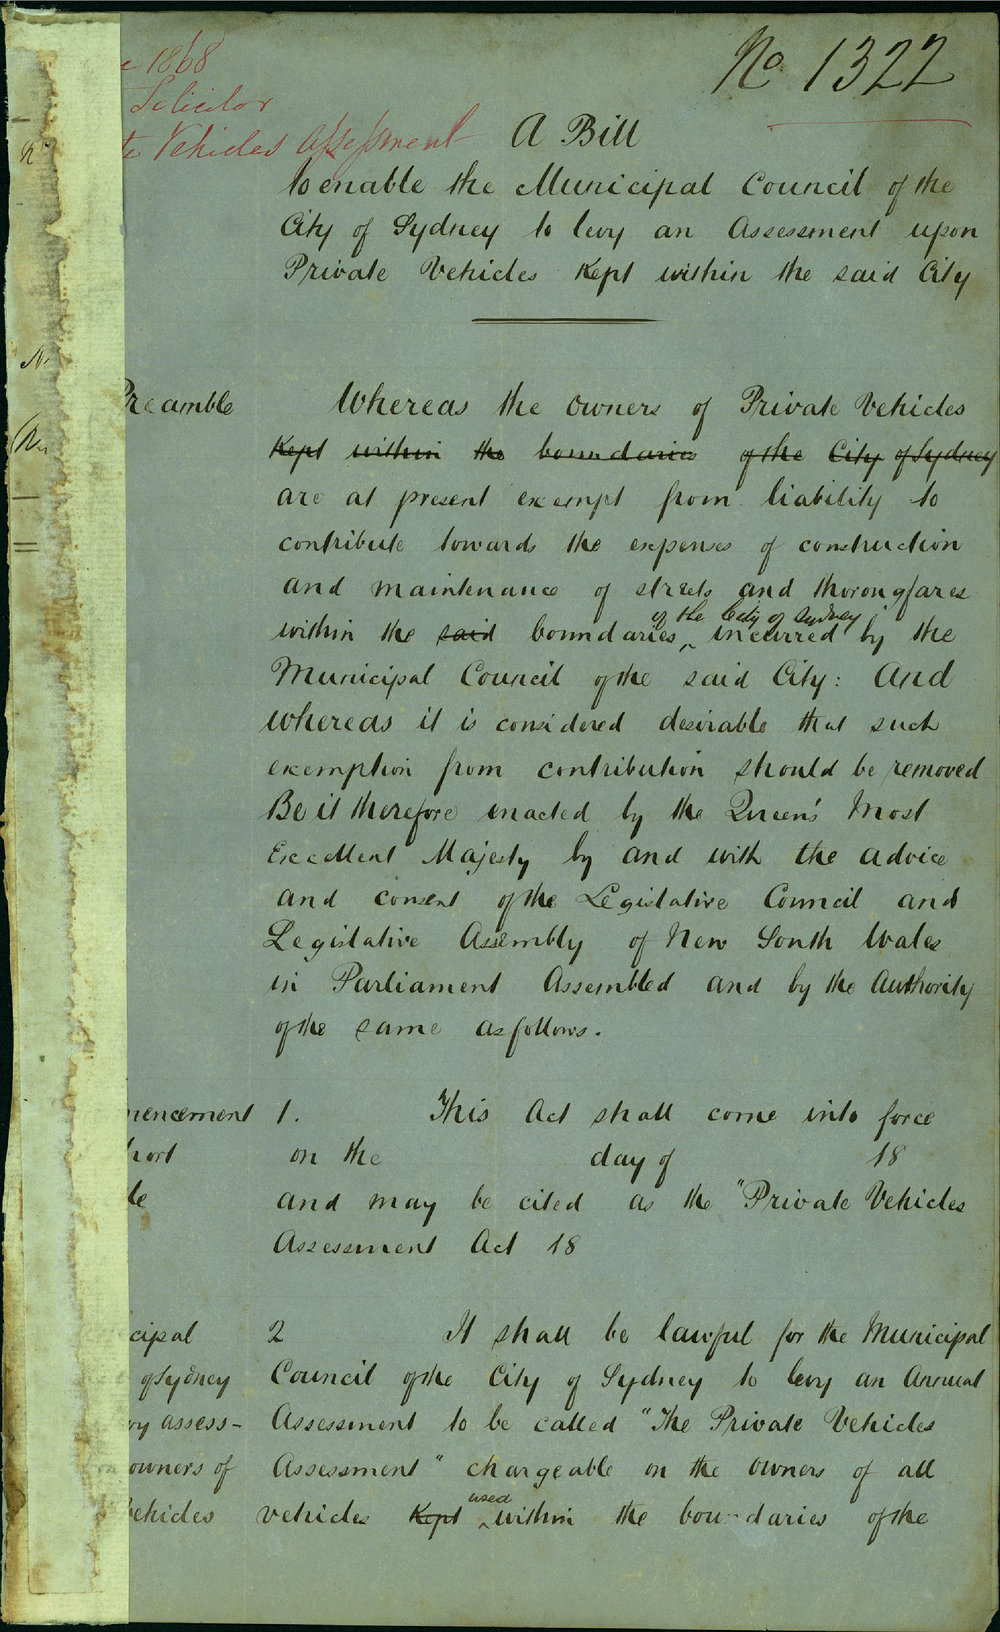 No 1322
1868
Solicitor
Vehicles Assessment
A Bill
to enable the Municipal Council of the
City of Sydney to levy an Assessment upon
Private Vehicles Kept within the said City
Preamble Whereas the owners of Private Vehicles
Kept within the boundaries of the City of Sydney
are at present exempt from liability to
contribute towards the expenses of construction
and maintenance of streets and thorougfares
of the City of Sydney
within the said boundaries, incurred by the
Municipal Council of the said City: And
whereas it is considered desirable that such
exemption from contribution should be removed
Be it therefore enacted by the Queen's Most
Excellent Majesty by and with the advice
and consent of the Legislative Council and
Legislative Assembly of New South Wales
in Parliament Assembled and by the Authority
of the same as follows.
mencement 1. This Act shall come into force
hort on the day of 18
le and may be cited as the "Private Vehicles
Assessment Act 18
cipal 2 It shall be lawful for the Municipal
of Sydney Council of the City of Sydney to levy an Annual
vy assess- Assessment to be called "The Private Vehicles
on owners of Assessment" chargeable on the owners of all
used
vehicles vehicles Kept within the boundaries of the